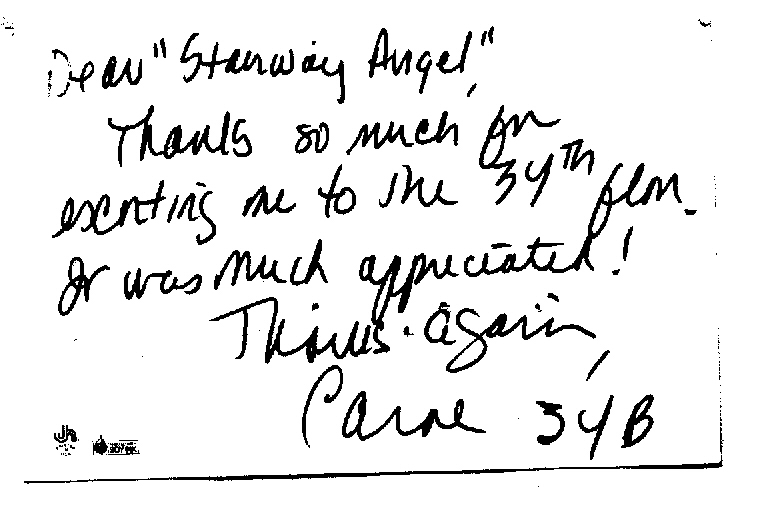 Dear "Stairway Angel",
Thanks so much for
escorting me to the 34th floor.
It was much appreciated!
Thanks again,
34B